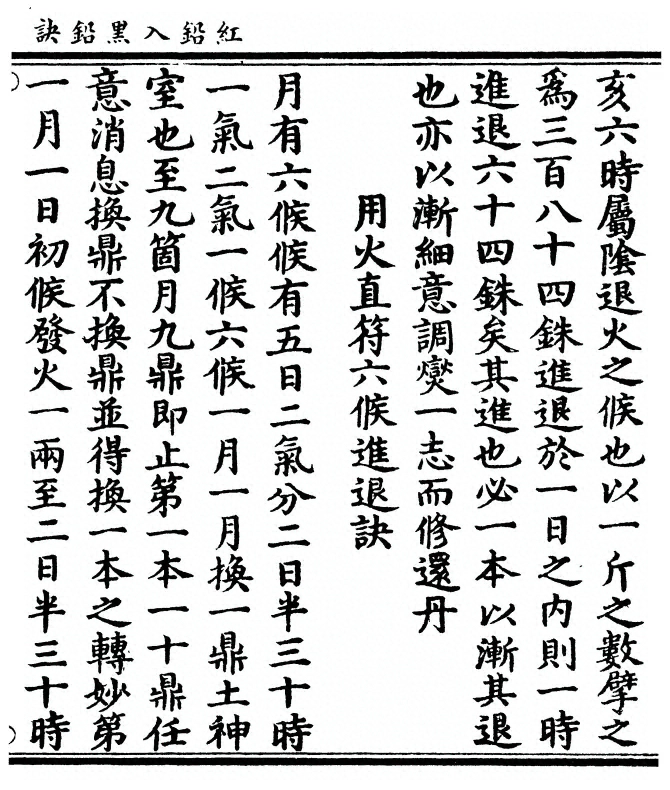 紅鉛入黑鉛訣
亥六時屬陰退火之候也以一斤之數擘之
爲三百八十四銖進退於一日之内則一時
進退六十四銖矣其進也必一本以漸其退
也亦以漸細意調燮一志而修還丹
用火直符六候進退訣
月有六候候有五日二氣分二日半三十時
一氣二氣一候六候一月一月換一鼎土神
室也至九箇月九鼎即止第一本一十鼎任
意消息換鼎不換鼎並得換一本之轉妙第
一月一日初候發火一兩至二日半三十時